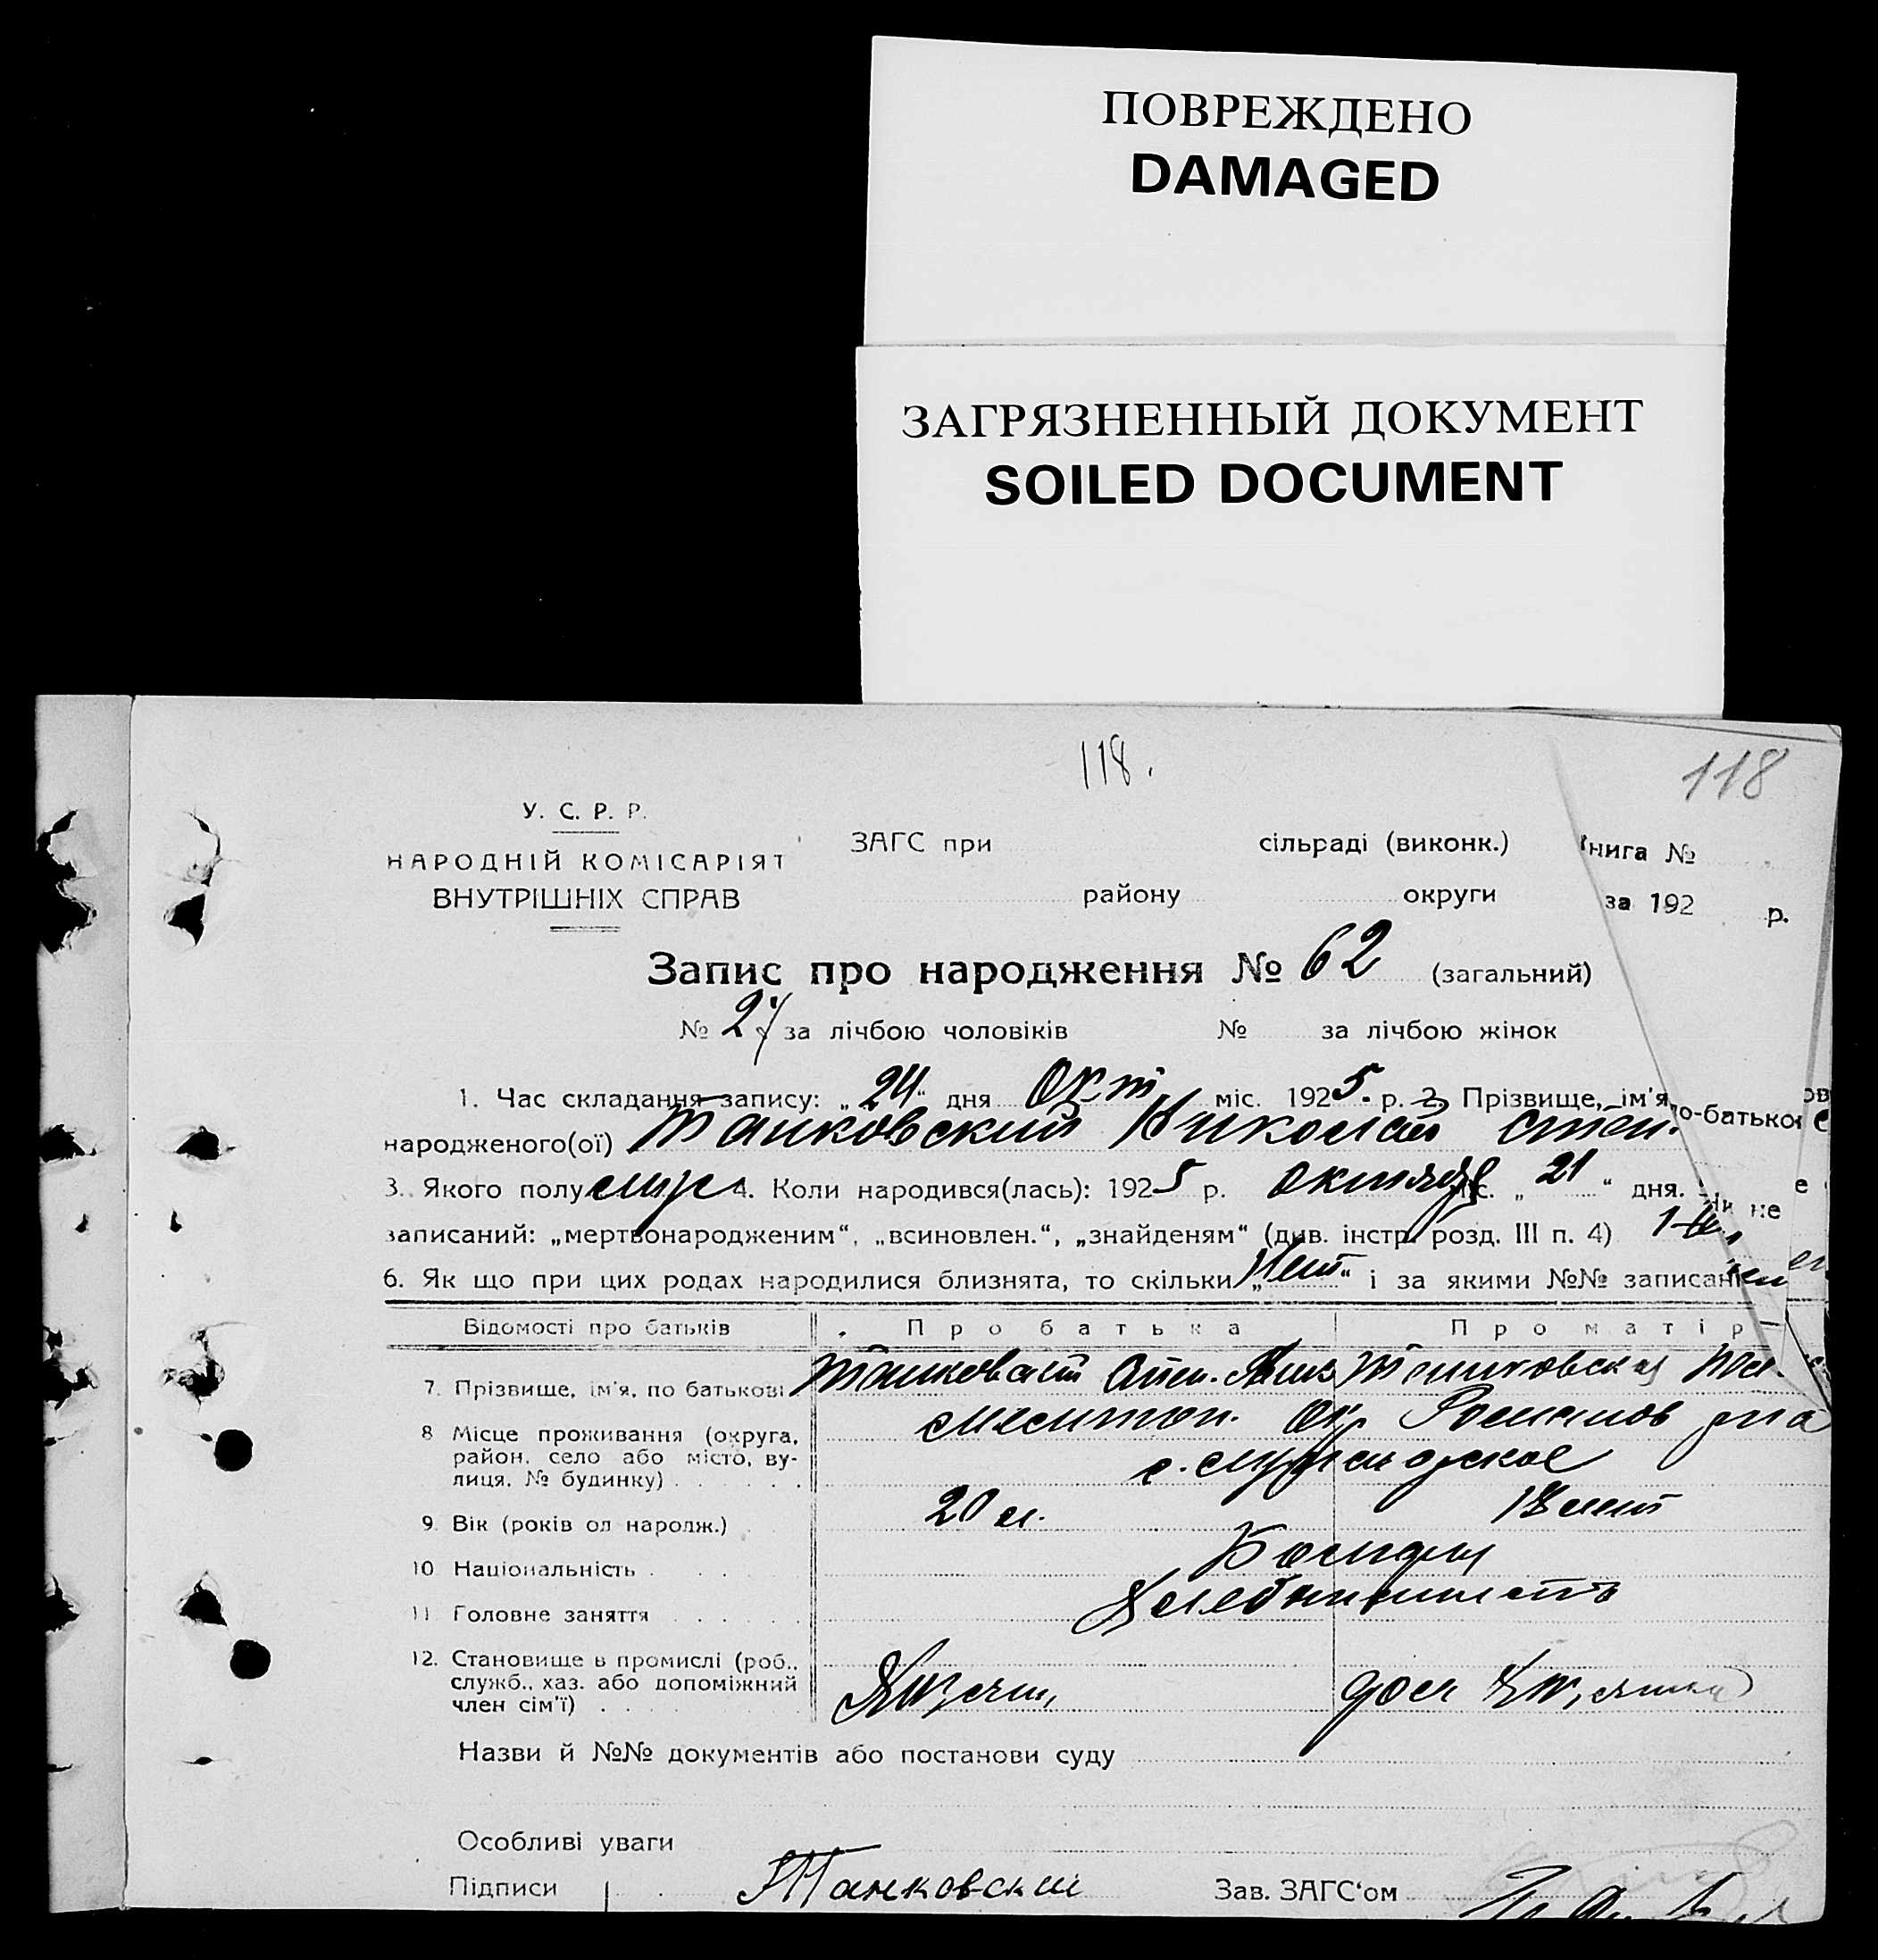 ПОВРЕЖДЕНО
DAMAGED
ЗАГРЯЗНЕННЫЙ ДОКУМЕНТ
SOILED DOCUMENT
118. 118
У. С. Р. Р.
НАРОДНІЙ КОМІСАРІЯТ
ВНУТРІШНІХ СПРАВ
ЗАГС при сільраді (виконк.) Книга №
району округи за 192 р.
Запис про народження № 62 (загальний)
№ 27 за лічбою чоловіків № за лічбою жінок
1. Час складання запису: „24“ дня Окт міс. 1925. р. 2. Прізвище, ім'я по-батькові
народженого(ої) Танковский Николай Степ.
3. Якого полу муж 4. Коли народився(лась): 1925 р. октября міс. „21“ дня. Чи не
записаний: „мертвонародженим“, „всиновлен.“, „знайденям“ (див. інстр. розд. III п. 4)
6. Як що при цих родах народилися близнята, то скільки „Нет“ і за якими №№ записані
Відомості про батьків Про батька Про матір
7. Прізвище, ім'я, по батькові Танковский Танковская
8 Місце проживання (округа, район, село або місто, вулиця, № будинку) Мелитоп. Окр Романов
9. Вік (років од народж.) 20 л. 18 лет
10 Національність Болгары
11 Головне заняття Хлебопашеств
12. Становище в промислі (роб., служб., хаз. або допоміжний член сім'ї)
Назви й №№ документів або постанови суду
Особливі уваги
Підписи Танковский Зав. ЗАГС'ом